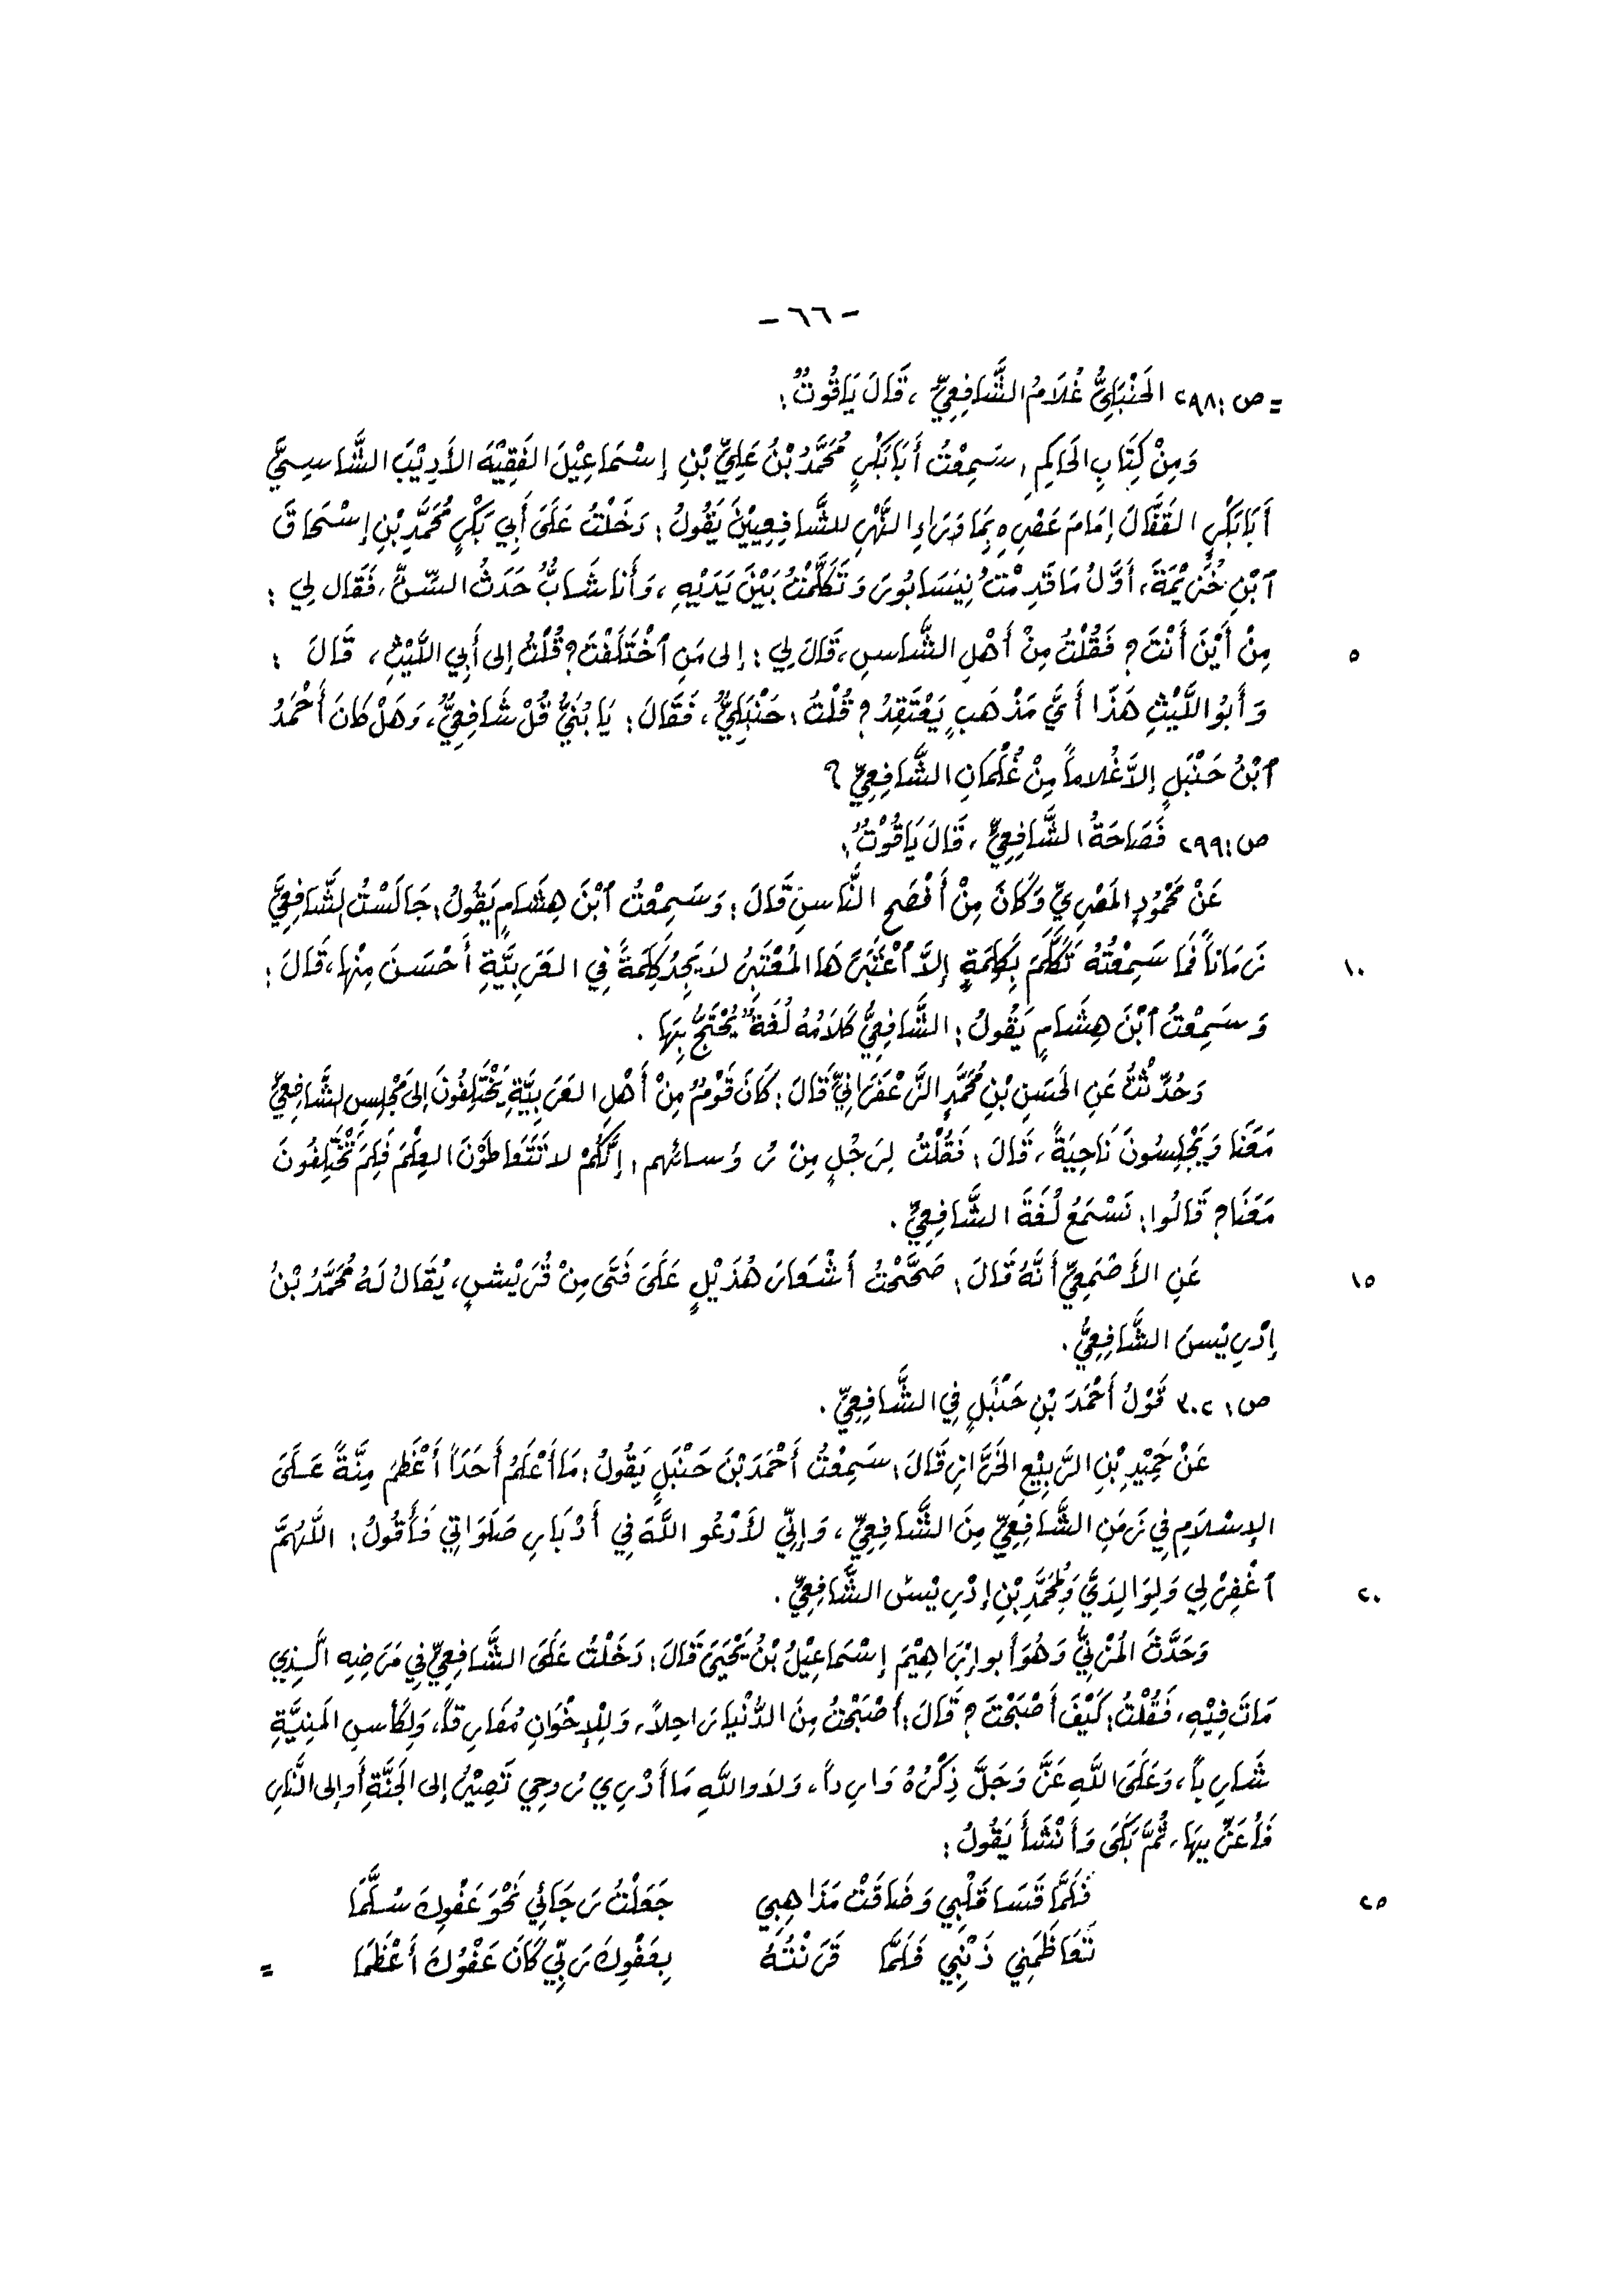 - ٦٦ -
= ص: ٢٩٨ الحَنْبَلِيُّ غُلَامُ الشَّافِعِيِّ ، قَالَ يَاقُوتٌ :
وَمِنْ كِتَابِ الحَاكِمِ : سَمِعْتُ أَبَا بَكْرٍ مُحَمَّدُ بْنُ عَلِيِّ بْنِ إسْمَاعِيْلَ الفَقِيْهَ الأَدِيْبَ الشَّاسِيَّ
أَبَا بَكْرٍ القَفَّالَ إمَامَ عَصْرِهِ بِمَا وَرَاءِ النَّهْرِ للشَّافِعِيِيْنَ يَقُولُ : دَخَلْتُ عَلَى أَبِي بَكْرٍ مُحَمَّدِ بْنِ إسْحَاقَ
ٱبْنِ خُزَيْمَةَ ، أَوَّلُ مَا قَدِمْتُ نِيَسَابُورَ وَتَكَلَّمْتُ بَيْنَ يَدَيْهِ ، وَأَنا شَابٌّ حَدَثُ السِّنِّ ، فَقَال لِي :
٥ مِنْ أَيْنَ أَنْتَ ؟ فَقُلْتُ مِنْ أَهْلِ الشَّاسِ ، قَالَ لِي : إلى مَنِ ٱخْتَلَفْتَ ؟ قُلْتُ إلى أَبِي اللَّيْثِ ، قَالَ :
وَأَبُو اللَّيْثِ هَذَا أَيَّ مَذْهَبٍ يَعْتَقِدُ ؟ قُلْتُ : حَنْبَلِيٌّ ، فَقَالَ : يَا بُنَيَّ قُلْ شَافِعِيٌّ ، وَهَلْ كَانَ أَحْمَدُ
ٱبْنُ حَنْبَلٍ إلاَّ غُلاماً مِنْ غُلْمَانِ الشَّافِعِيِّ ؟
ص: ٢٩٩ فَصَاحَةُ الشَّافِعِيِّ ، قَالَ يَاقُوْتٌ :
عَنْ مَحْمُودٍ المَصْرِيِّ وَكَانَ مِنْ أَفْصَحِ النَّاسِ قَالَ : وَسَمِعْتُ ٱبْنَ هِشَامٍ يَقُولُ : جَالَسْتُ الشَّافِعِيَّ
١٠ زَمَاناً فَمَا سَمِعْتُهُ تَكَلَّمَ بِكَلِمَةٍ إلاَّ ٱعْتَبَرَهَا المُعْتَبِرُ لَا يَجِدُ كَلِمَةً فِي العَرَبِيَّةِ أَحْسَنَ مِنْهَا ، قَالَ :
وَسَمِعْتُ ٱبْنَ هِشَامٍ يَقُولُ : الشَّافِعِيُّ كَلَامُهُ لُغَةٌ يُحْتَجُّ بِهَا .
وَحُدِّثْتُ عَنِ الحَسَنِ بْنِ مُحَمَّدٍ الزَّعْفَرَانِيِّ قَالَ : كَانَ قَوْمٌ مِنْ أَهْلِ العَرَبِيَّةِ يَخْتَلِفُونَ إلى مَجْلِسِ الشَّافِعِيِّ
مَعَنَا وَيَجْلِسُونَ نَاحِيَةً ، قَالَ : فَقُلْتُ لِرَجُلٍ مِنْ رُؤَسائهم : إنَّكُمْ لا تَتَعَاطَوْنَ العِلْمَ فَلِمَ تَخْتَلِفُونَ
مَعَنَا ؟ قَالُوا : نَسْمَعُ لُغَةَ الشَّافِعِيِّ .
١٥ عَنِ الأَصْمَعِيِّ أَنَّهُ قَالَ : صَحَّحْتُ أَشْعَارَ هُذَيْلٍ عَلَى فَتَى مِنْ قُرَيْشٍ ، يُقَالُ لَهُ مُحَمَّدُ بْنُ
إدْرِيْسَ الشَّافِعِيُّ .
ص: ٣٠٢ قَوْلُ أَحْمَدَ بْنِ حَنْبَلٍ فِي الشَّافِعِيِّ .
عَنْ حُمَيْدِ بْنِ الرَّبِيْعِ الخَزَّازِ قَالَ : سَمِعْتُ أَحْمَدَ بْنَ حَنْبَلٍ يَقُولُ : مَا أَعْلَمُ أَحَدَاً أَعْظَمَ مِنَّةً عَلَى
الإسْلَامِ فِي زَمَنِ الشَّافِعِيِّ مِنَ الشَّافِعِيِّ ، وَإنِّي لأَدْعُو اللَّهَ فِي أَدْبَارِ صَلَوَاتِي فَأَقُولُ : اللَّهُمَّ
٢٠ ٱغْفِرْ لِي وَلِوَالِدَيَّ وَلِمُحَمَّدِ بْنِ إدْرِيْسَ الشَّافِعِيِّ .
وَحَدَّثَ المُزَنِيُّ وَهُوَ أَبو إبْرَاهِيْمَ إسْمَاعِيْلُ بْنُ يَحْيَى قَالَ : دَخَلْتُ عَلَى الشَّافِعِيِّ فِي مَرَضِهِ الَّذِي
مَاتَ فِيْهِ ، فَقُلْتُ : كَيْفَ أَصْبَحْتَ ؟ قَالَ : أَصْبَحْتُ مِنَ الدُّنْيَا رَاحِلاً ، وَلِلإخْوَانِ مُفَارِقاً ، وَلِكَأْسِ المَنِيَّةِ
شَارِباً ، وَعَلَى اللَّهِ عَزَّ وَجَلَّ ذِكْرُهُ وَارِداً ، وَلَا وَاللَّهِ مَا أَدْرِي رُوحِي تَصِيْرُ إلى الجَنَّةِ أَو إلى النَّارِ
فَأُعَزِّيهَا ، ثُمَّ بَكَى وَأَنْشَأَ يَقُولُ :
٢٥ فَلَمَّا قَسَا قَلْبِي وَضَاقَتْ مَذَاهِبِي جَعَلْتُ رَجَائِي نَحْوَ عَفْوِكَ سُلَّمَا
تَعَاظَمَنِي ذَنْبِي فَلَمَّا قَرَنْتُهُ بِعَفْوِكَ رَبِّي كَانَ عَفْوُكَ أَعْظَمَا =